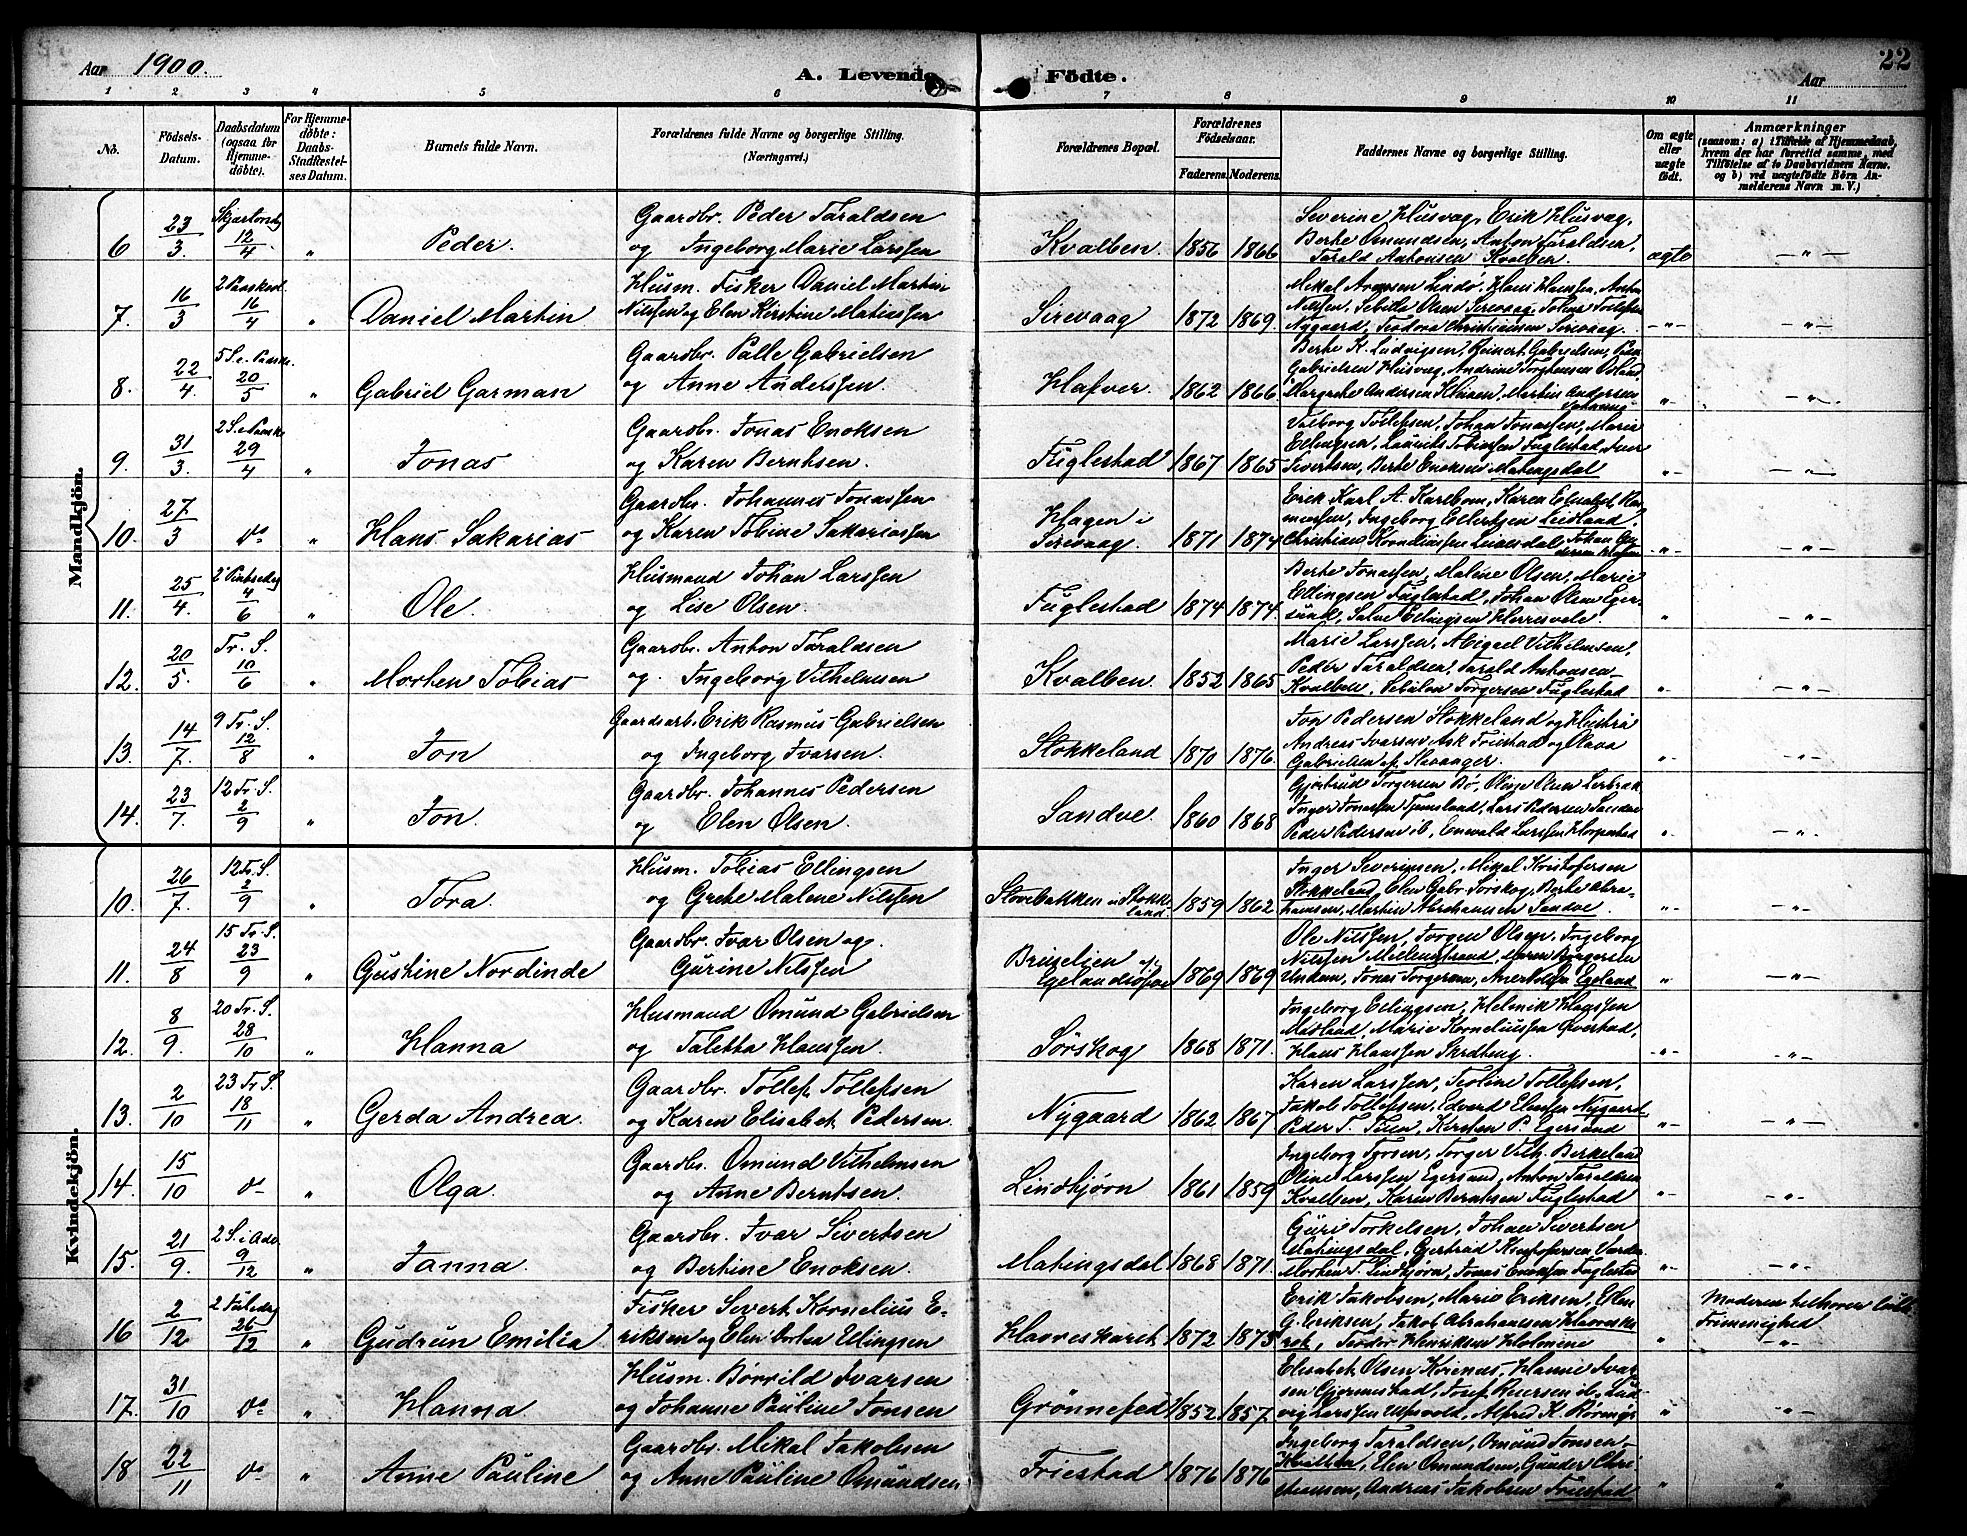 Aar 1900.
A. Levende Födte.
Aar
22
1 2 3 4 5 6 7 8 9 10 11
No.
Födsels-Datum.
Daabsdatum (ogsaa for Hjemmedöbte).
For Hjemmedöbte: Daabs-Stadfæstelses Datum.
Barnets fulde Navn.
Forældrenes fulde Navne og borgerlige Stilling. (Næringsvei.)
Forældrenes Bopæl.
Forældrenes Födselsaar.
Faderens. Moderens.
Faddernes Navne og borgerlige Stilling.
Om ægte eller uægte födt.
Anmærkninger
(saasom: a) i Tilfælde af Hjemmedaab, hvem der har forrettet samme, med Tilföielse af to Daabsvidners Navne. og b) ved uægtefödte Börn Anmelderens Navn m. V.)
Mandkjön.
6. 23/3 Skjærtorsdg 12/4 " Peder. Gaardbr. Peder Taraldsen og Ingeborg Marie Larssen Kvalben. 1856 1866 Severine Husvæg, Erik Husvæg, Berte Omundsen, Anton Taraldsen, Tarald Antonsen Kvalben. ægte —"—
7. 16/3 2 Paaskед. 16/4 " Daniel Martin Husm. Fisker Daniel Martin Nilssen og Elen Kirstine Matiassen Sirevaag 1872 1869. Nilssen, Sebille Olsen Sirevaag, Nygaard, Teodora Christiansen Sirevaag. —"— —"—
8. 22/4. 5 S. e. Paaske. 20/5 " Gabriel Garman Gaardbr. Palle Gabrielsen og Anne Anderssen. Hafver. 1862 1866. Berte K. Ludvigsen, Reinert Gabrielsen, Gabrielsen Husvæg, Andrine Torgersen "— —"—
9. 31/3. 2 S. e. Paaske 29/4 " Jonas Gaardbr. Jonas Enoksen og Karen Berntsen. Fuglestad 1867 1865 Valborg Tollefsen, Johan Jonassen, Marie Ellingsen, Laurits Tobiassen Fuglestad, Sivertsen, Berte Enoksen Matingsdal "— —"—
10. 27/3 do " Hans Sakarias Gaardbr. Johannes Jonassen og Karen Tobine Sakariassen Hagen i Sirevaag. 1871 1874 Erik Karl A. Karlbom, Karen Elisabet Ras- mussen, Ingeborg Ellertsen Leidland, Christian Korneliussen "— —"—
11. 25/4. 2 Pintsedag 4/6 " Ole. Husmand Johan Larssen og Lise Olsen. Fuglestad 1874 1874. Berte Jonassen, Malene Olsen, Marie Ellingsen Fuglestad, Johan Olsen Eger- sund, Salve Ellingsen " —"—
12. 20/5. Tr. S. 10/6 " Morten Tobias Gaardbr. Anton Taraldsen og Ingeborg Vilhelmsen Kvalben. 1852 1865 Marie Larssen, Abigael Vilhelmsen, Peder Taraldsen, Tarald Antonsen Kvalben, Torgersen Fuglestad "— —"—
13. 14/7. 9 Tr. S. 12/8 " Jon Gaardsarb. Erik Rasmus Gabrielsen og Ingeborg Ivarsen. Stokkeland 1870 1876. Jon Pedersen Stokkeland og Hustru Andreas Ivarsen Ask Friestad og Olava Gabrielsen af Stavanger. "— —"—
14. 23/7. 12 Tr. S. 2/9 " Jon. Gaardbr. Johannes Pedersen og Elen Olsen. Sandve. 1860 1868 Gjertrud Torgersen Bø, Olsen Lerbræk Inger Jonassen Tjemsland, Lars Pedersen Sandve Peder Pedersen ib, Enevald Larssen " —"—
Kvindekjön.
10. 26/7. 12 Tr. S. 2/9 " Tora. Husm. Tobias Ellingsen og Grete Malene Nilssen Stovebakken i Stokke- land 1859 1862 Inger Severinsen, Mikal Kristofersen Stokkeland, Elen Gabr. Sørskog, Berte Abra- hamsen, Martin Abrahamsen Sandve. "— —"—
11. 24/8 15 Tr. S. 23/9 " Gustine Nordinde Gaardbr. Ivar Olsen og Gurine Nilssen Bruselien 1869 1869 Ole Nilssen, Torger Olsen, Ingeborg Nilssen Jonas Torgersen, Egeland "— —"—
12. 8/9. 20 Tr. S. 28/10 " Hanna Husmand Omund Gabrielsen og Taletta Hanssen. Sørskog 1868 1871. Ingeborg Ellingsen, Helmik Hanssen Marie Korneliussen Hans Hanssen "— —"—
13. 2/10 23 Tr. S. 18/11 " Gerda Andrea. Gaardbr. Tollef Tollefsen og Karen Elisabet Pedersen. Nygaard 1862 1867 Karen Larssen, Teoline Tollefsen, Jakob Tollefsen, Edvard Nygaard Peder T. Kirsten P. Egersund "— —"—
14. 15/10 do " Olga. Gaardbr. Omund Vilhelmsen og Anne Berntsen. Lindtjørn 1861 1859 Ingeborg Torger Vilh. Berkeland Oline Larssen Egersund, Anton Taraldsen Kvalben, Karen Berntsen Fuglestad "— —"—
15. 21/9. 2 S. i Adv. 9/12 " Janna. Gaardbr. Ivar Sivertsen og Bertine Enoksen. Matingsdal 1868 1871. Guri Torkelsen, Johan Sivertsen Matingsdal, Gertrud Kristofersen Morten T. Lindtjørn, Jonas Enoksen Fuglestad "— —"—
16 2/12 2 Juledag 26/12 " Gudrun Emilia Fisker Sivert Kornelius E- riksen og Elen Ellingsen Havneskaret 1872 1875 Erik Jakobsen, Marie Eriksen, Elen G. Eriksen, Jakob Abrahamsen Teodor Henriksen Holmene " Moderen tilhører luth. Frimenighed —"—
17. 31/10 do " Hanna. Husm. Børrild Ivarsen og Johanne Pauline Jonsen Grønnefed 1852 1857 Elisabet Olsen Hanne Ivar- sen Gjermestad, Josef Reiersen ib, Lud- vig Larssen Alfred K. " —"—
18 22/11 do " Anne Pauline Gaardbr. Mikal Jakobsen og Anne Pauline Omundsen Friestad 1876 1876 Ingeborg Taraldsen, Omund Jonsen Kvalben, Elen Omundsen, Gunder Chri- stiansen, Andreas Jakobsen Friestad " "